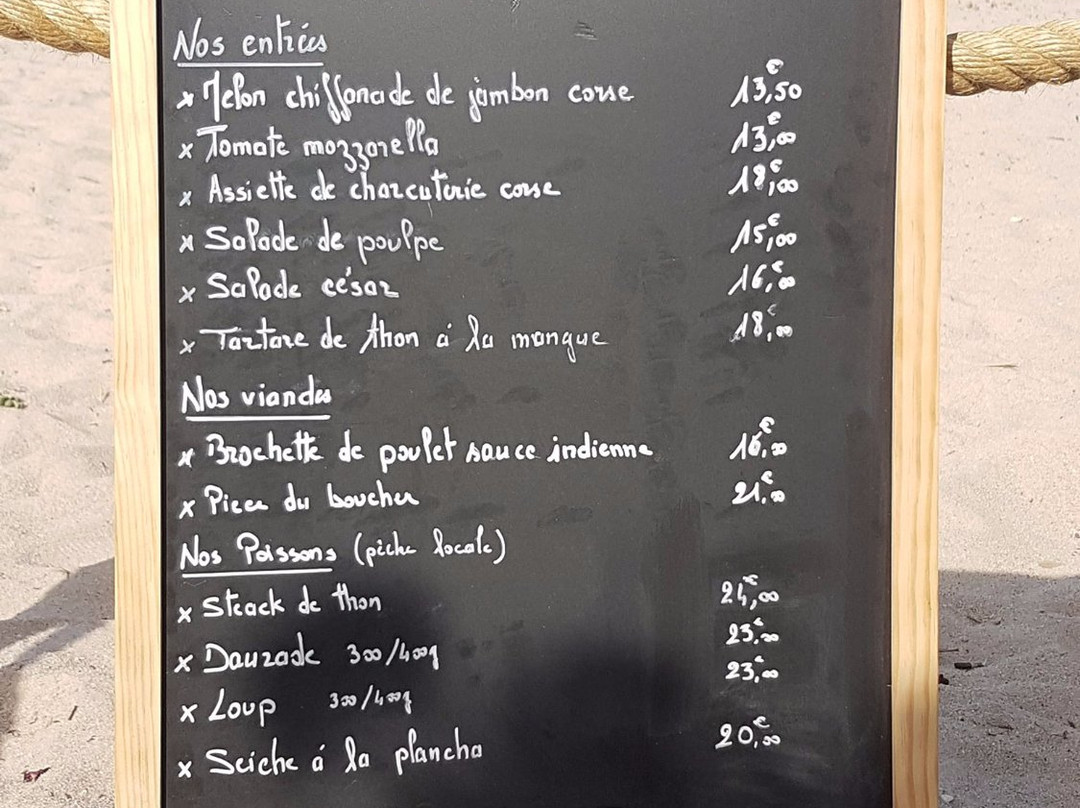 Nos entrées
x Melon chiffonade de jambon corse 13,50€
x Tomate mozzarella 13,00€
x Assiette de charcuterie corse 18,00€
x Salade de poulpe 15,00€
x Salade césar 16,00€
x Tartare de thon á la mangue 18,00€
Nos viandes
x Brochette de poulet sauce indienne 16,00€
x Piece du boucher 21,00€
Nos Poissons (pêche locale)
x Steack de thon 24,00€
x Daurade 300/400g 23,00€
x Loup 300/400g 23,00€
x Seiche á la plancha 20,00€